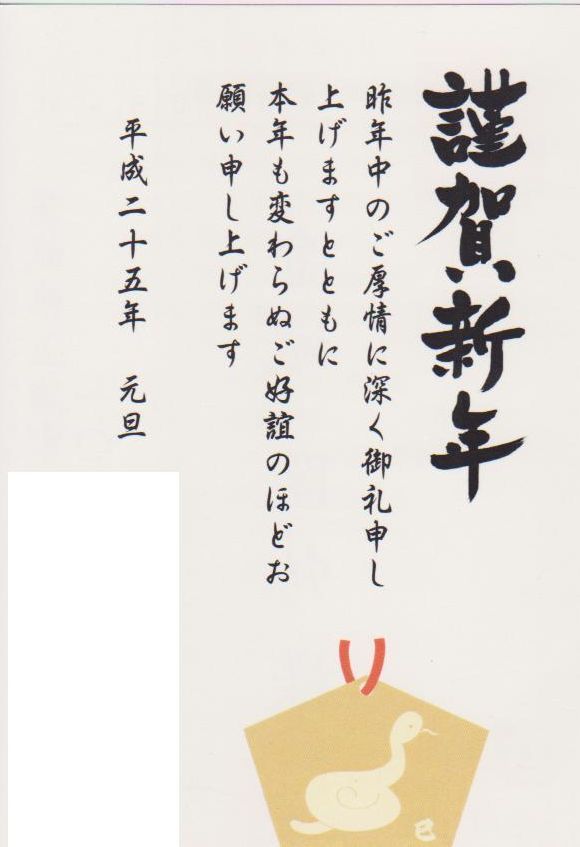 謹賀新年
昨年中のご厚情に深く御礼申し
上げますとともに
本年も変わらぬご好誼のほどお
願い申し上げます
平成二十五年　元旦
巳